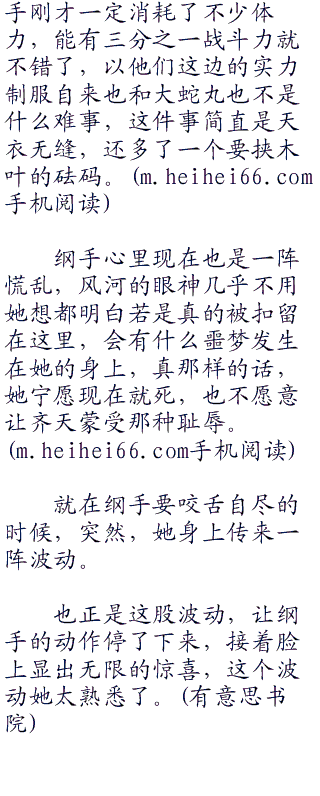 手刚才一定消耗了不少体
力，能有三分之一战斗力就
不错了，以他们这边的实力
制服自来也和大蛇丸也不是
什么难事，这件事简直是天
衣无缝，还多了一个要挟木
叶的砝码。(m.heihei66.com
手机阅读)
纲手心里现在也是一阵
慌乱，风河的眼神几乎不用
她想都明白若是真的被扣留
在这里，会有什么噩梦发生
在她的身上，真那样的话，
她宁愿现在就死，也不愿意
让齐天蒙受那种耻辱。
(m.heihei66.com手机阅读)
就在纲手要咬舌自尽的
时候，突然，她身上传来一
阵波动。
也正是这股波动，让纲
手的动作停了下来，接着脸
上显出无限的惊喜，这个波
动她太熟悉了。(有意思书
院)